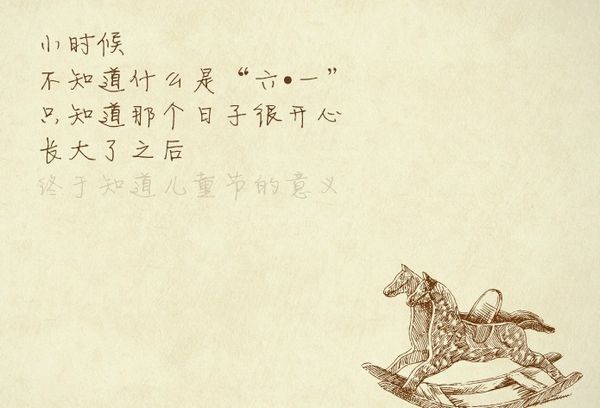 小时候
不知道什么是“六•一”
只知道那个日子很开心
长大了之后
终于知道儿童节的意义